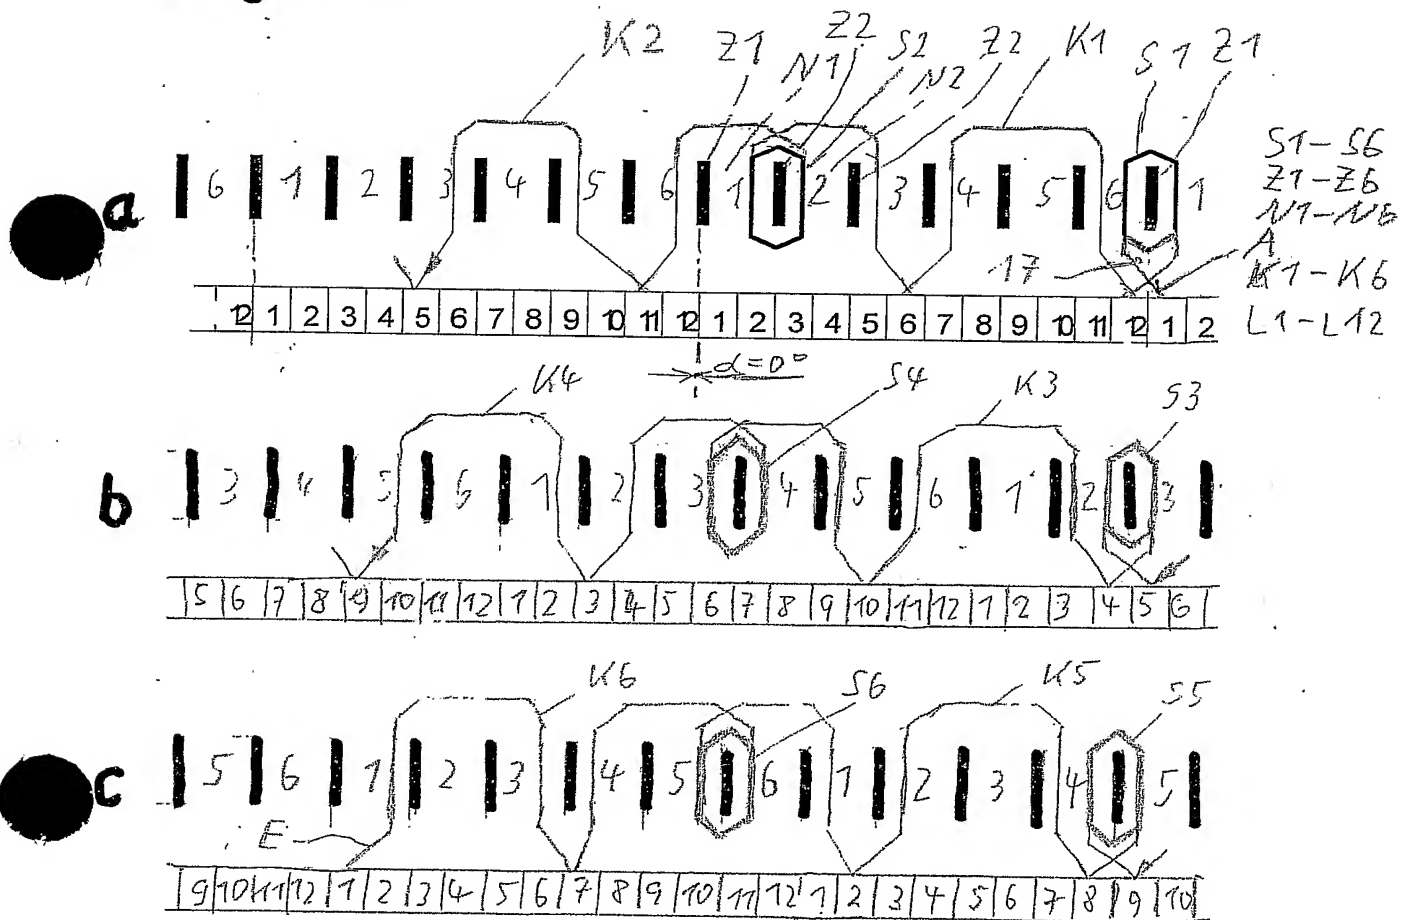 K2 Z1 N1 Z2 S2 N2 Z2 K1 S1 Z1
a 6 1 2 3 4 5 6 1 2 3 4 5 6 1
S1-S6
Z1-Z6
N1-N6
17 A
K1-K6
12 1 2 3 4 5 6 7 8 9 10 11 12 1 2 3 4 5 6 7 8 9 10 11 12 1 2 L1-L12
α=0°
K4 S4 K3 S3
b 3 4 5 6 1 2 3 4 5 6 1 2 3
5 6 7 8 9 10 11 12 1 2 3 4 5 6 7 8 9 10 11 12 1 2 3 4 5 6
K6 S6 K5 S5
c 5 6 1 2 3 4 5 6 1 2 3 4 5
E
9 10 11 12 1 2 3 4 5 6 7 8 9 10 11 12 1 2 3 4 5 6 7 8 9 10